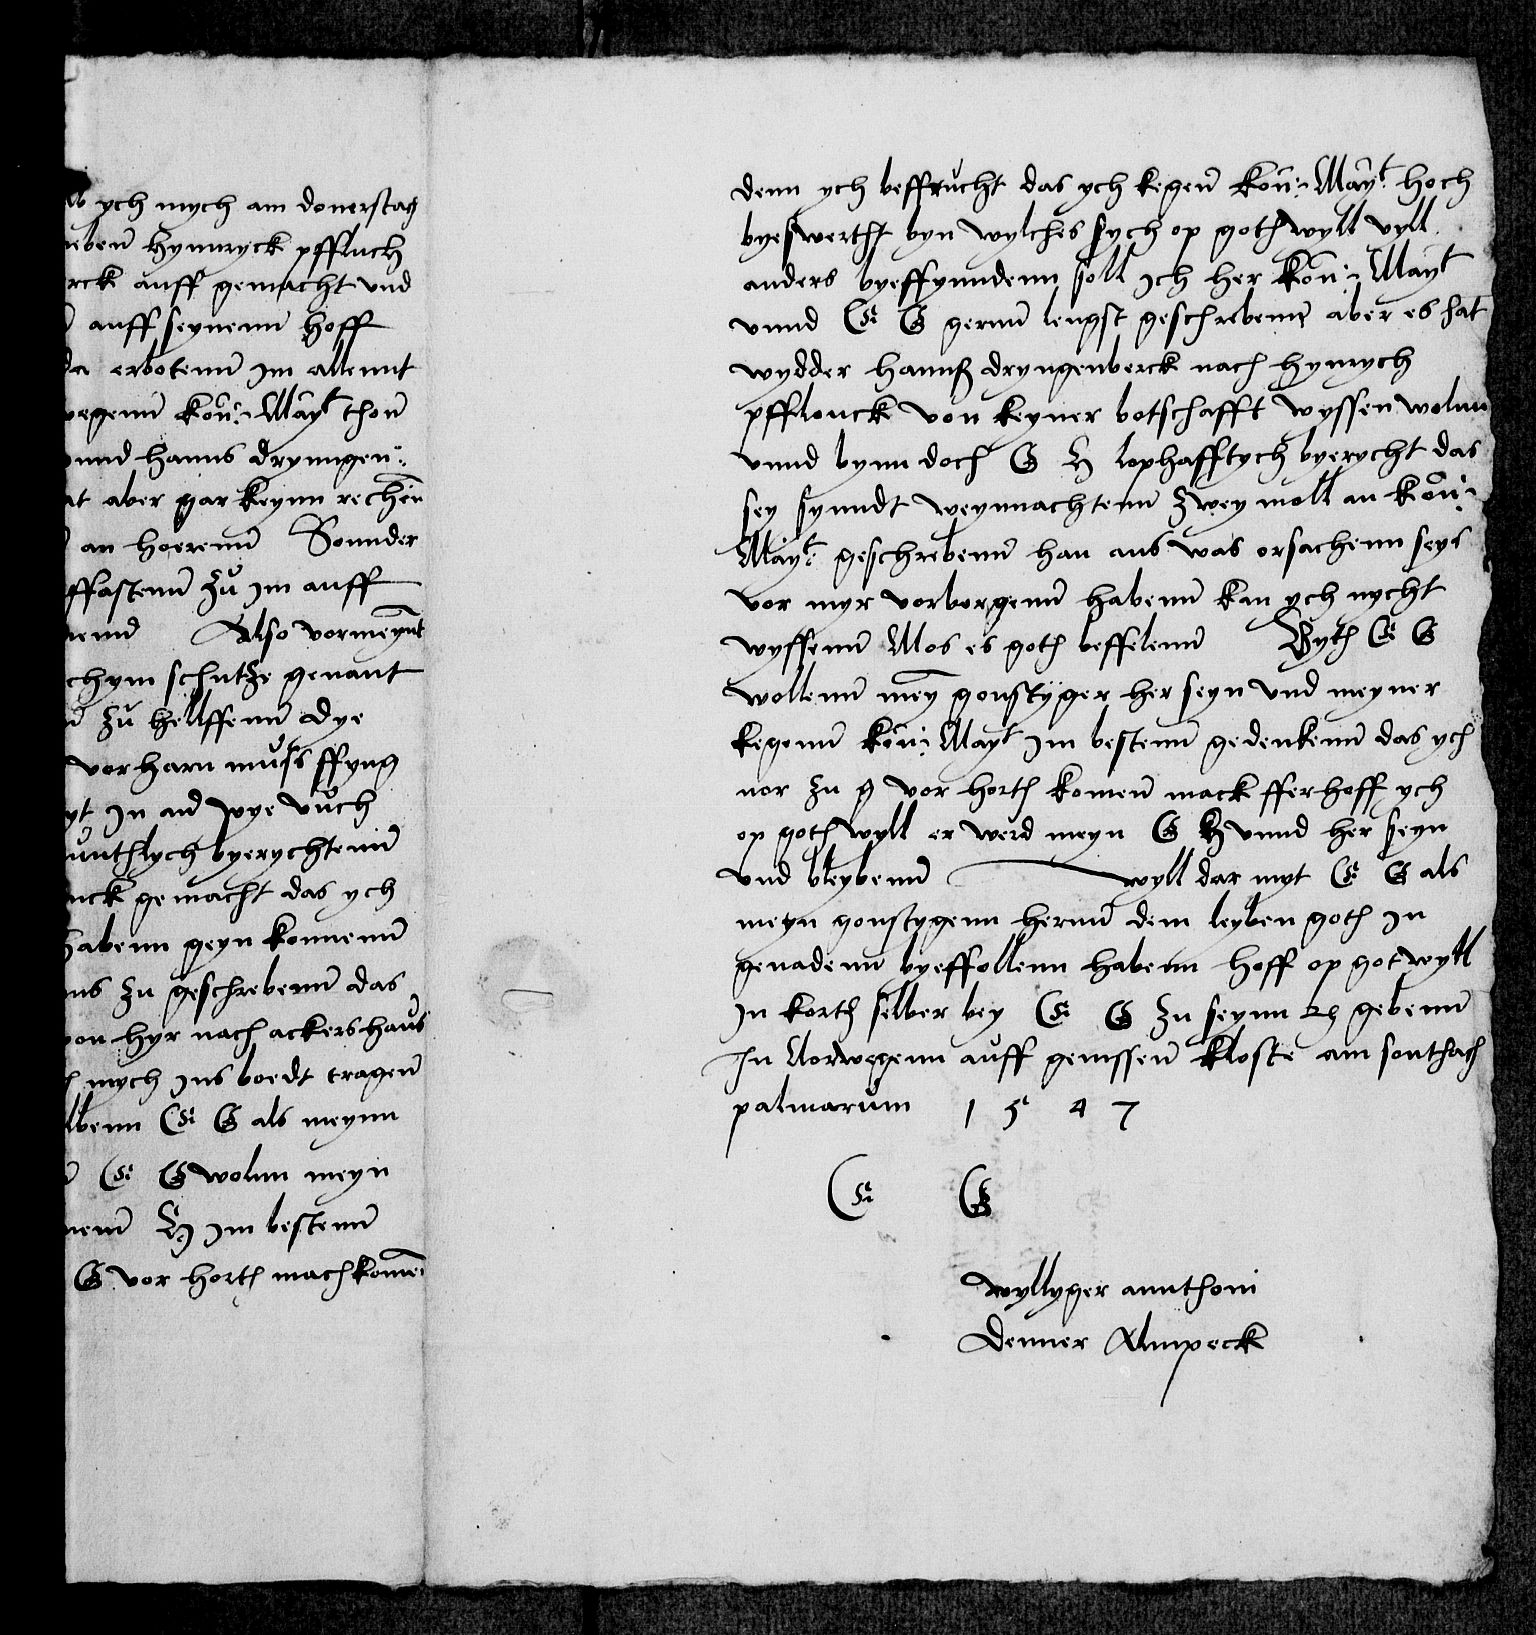 ych mych am donerstag
nebenn Hynnryck pffluch
rck auff gemacht und
auff seynenn hoff
da erbotenn im allennt
wegenn kön: Mayt thon
unnd hanns drynngen::
at aber gar keynn rechen
an hoerenn Sonnder
ffastenn zu im auff
nemd Also vormeynt
chym schutze genant
zu hellffenn dye
vorharn muss ffyng
yt in ad wye vuch
unthlych byerychtenn
nck gemacht das ych
habenn geyn konnenn
uns zu geschrebenn das
von hyr nach ackershaus
mych ins boedt tragen
lbenn E G als meynn
E G wolnn meyn
nenn H im bestenn
G vor horth mach komen
denn ych beffrucht das ych kegen kön: Mayt hoch
byeswertht byn wylches sych op goth wyll vyll
anders byeffynndenn soll Ich her kön: Mayt
vnnd E G gernn lengst geschrebenn aber es hat
wydder hannß dryngenberck nach hynrych
pfflouck von keyner botschafft wyssen wolnn
vnnd bynn doch G H lophafftych byerycht das
sey synndt weynnachtenn zwey moll an kön:
Mayt geschrebenn han aus was orsachenn seys
vor myr vorborgenn habenn kan ych nycht
wyssenn Mos es goth beffelenn Byth E G
wollenn mey gonstyger her seyn vnd meyner
kegenn kön: Mayt im bestenn gedenkenn das ych
nor zu g vor horth komen mack fferhoff ych
op goth wyll er werd meyn G H vnnd her seyn
vnd bleybenn wyll dar myt E G als
meyn gonstygenn hernn dem leyben goth in
genadenn byeffollenn habenn hoff op got wyll
in korth selber bey E G zu seynn gebenn
In Norwegenn auff genissen kloste am sonthach
palmarum 1547
E G
wyllyger annthoni
Denner Ampeck